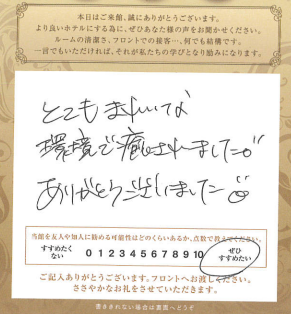 本日はご来館、誠にありがとうございます。
より良いホテルにする為に、ぜひあなた様の声をお聞かせください。
ルームの清潔さ、フロントでの接客…、何でも結構です。
一言でもいただければ、それが私たちの学びとなり励みになります。
とてもきれいな
環境で癒されました
ありがとうございました
当館を友人や知人に勧める可能性はどのくらいあるか、点数で教えてください。
すすめたくない 0 1 2 3 4 5 6 7 8 9 10 ぜひすすめたい
ご記入ありがとうございます。フロントへお渡しください。
ささやかなお礼をさせていただきます。
書ききれない場合は裏面へどうぞ